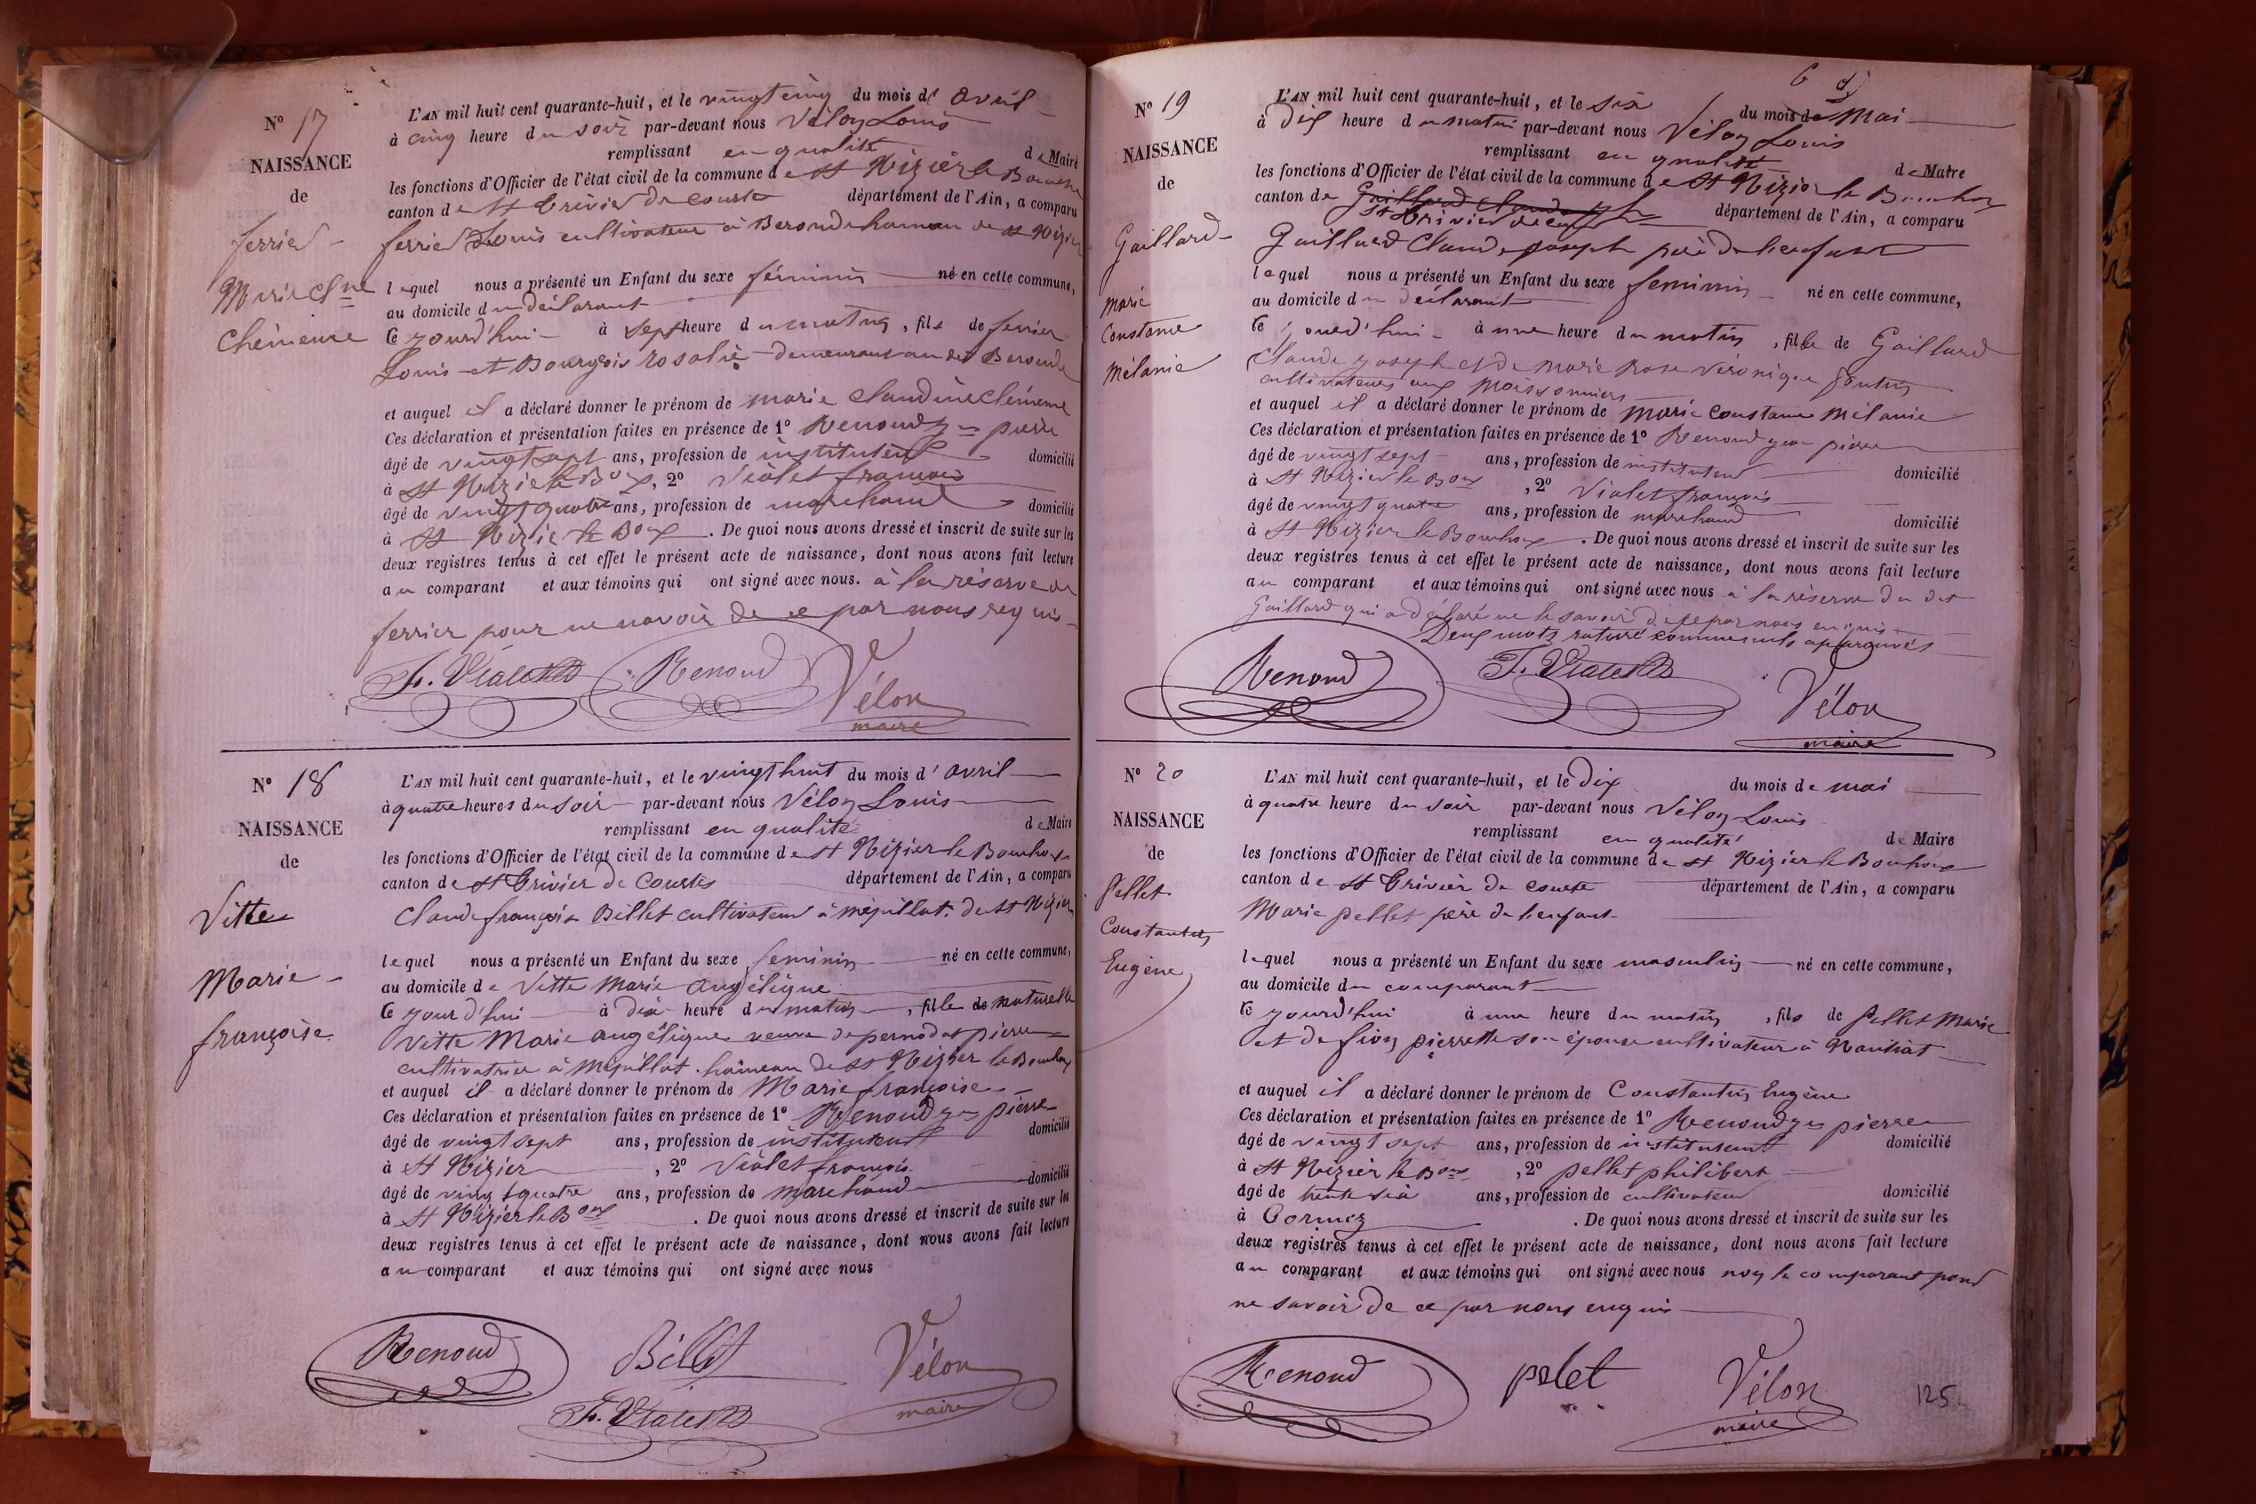 N° 17
NAISSANCE
de
ferrier
Marie Clne
Clémence
L'AN mil huit cent quarante-huit, et le vingt cinq du mois d' avril
à cinq heure du soir par-devant nous Vélon Louis
remplissant en qualité de Maire
les fonctions d'Officier de l'état civil de la commune de St Nizier le Bouchoux
canton de St Trivier de Courtes département de l'Ain, a comparu
ferrier Louis cultivateur à Beronde hameau de St Nizier
lequel nous a présenté un Enfant du sexe féminin né en cette commune,
au domicile du déclarant
Ce jourd'hui à sept heure du matin, fils de ferrier
Louis et Bourgeois rosalie demeurant au dit Beronde
et auquel il a déclaré donner le prénom de marie claudine clémence
Ces déclaration et présentation faites en présence de 1° Renoud jn pierre
âgé de vingt sept ans, profession de instituteur domicilié
à St Nizier le Boux, 2° Violet françois
âgé de vingt quatre ans, profession de marchand domicilié
à St Nizier le Boux. De quoi nous avons dressé et inscrit de suite sur les
deux registres tenus à cet effet le présent acte de naissance, dont nous avons fait lecture
au comparant et aux témoins qui ont signé avec nous. à la réserve de
ferrier pour ne savoir de ce par nous requis
F. Violet Renoud Vélon
maire
N° 18
NAISSANCE
de
Vitte
Marie
françoise
L'AN mil huit cent quarante-huit, et le vingt huit du mois d' avril
à quatre heures du soir par-devant nous Vélon Louis
remplissant en qualité de Maire
les fonctions d'Officier de l'état civil de la commune de St Nizier le Bouchoux
canton de St Trivier de Courtes département de l'Ain, a comparu
Claude françois Billet cultivateur à mépillat. de St Nizier
lequel nous a présenté un Enfant du sexe feminin né en cette commune,
au domicile de Vitte Marie angélique
Ce jourd'hui à dix heure du matin, fille de naturelle
Vitte Marie angélique veuve de pernodet pierre
cultivatrice à Mépillat. hameau de St Nizier le Bouchoux
et auquel il a déclaré donner le prénom de Marie françoise
Ces déclaration et présentation faites en présence de 1° Renoud jn pierre
âgé de vingt sept ans, profession de instituteur domicilié
à St Nizier, 2° Violet françois
âgé de vingt quatre ans, profession de marchand domicilié
à St Nizier le Boux. De quoi nous avons dressé et inscrit de suite sur les
deux registres tenus à cet effet le présent acte de naissance, dont nous avons fait lecture
au comparant et aux témoins qui ont signé avec nous
Renoud Billet Vélon
F. Violet maire
6
N° 19
NAISSANCE
de
Gaillard
marie
Constance
mélanie
L'AN mil huit cent quarante-huit, et le six du mois de Mai
à Dix heure du matin par-devant nous Vélon Louis
remplissant en qualité de Maire
les fonctions d'Officier de l'état civil de la commune de St Nizier le Bouchoux
canton de Gaillard Claude
St Trivier de Courtes département de l'Ain, a comparu
Gaillard Claude joseph père de l'enfant
lequel nous a présenté un Enfant du sexe feminin né en cette commune,
au domicile du déclarant
Ce jourd'hui à une heure du matin, fille de Gaillard
Claude joseph et de marie Rose véronique
cultivateurs aux Moissonniers
et auquel il a déclaré donner le prénom de marie constance mélanie
Ces déclaration et présentation faites en présence de 1° Renoud jean pierre
âgé de vingt sept ans, profession de instituteur domicilié
à St Nizier le Boux, 2° Violet françois
âgé de vingt quatre ans, profession de marchand domicilié
à St Nizier le Bouchoux. De quoi nous avons dressé et inscrit de suite sur les
deux registres tenus à cet effet le présent acte de naissance, dont nous avons fait lecture
au comparant et aux témoins qui ont signé avec nous à la réserve du dit
Gaillard qui a déclaré ne le savoir de ce par nous enquis
Deux mots raturé comme nuls approuvés
Renoud F. Violet Vélon
maire
N° 20
NAISSANCE
de
Pellet
Constantin
Eugène
L'AN mil huit cent quarante-huit, et le Dix du mois de mai
à quatre heure du soir par-devant nous Vélon Louis
remplissant en qualité de Maire
les fonctions d'Officier de l'état civil de la commune de St Nizier le Bouhoux
canton de St Trivier de courte département de l'Ain, a comparu
Marie pellet père de l'enfant
lequel nous a présenté un Enfant du sexe masculin né en cette commune,
au domicile du comparant
Ce jourd'hui à une heure du matin, fils de Pellet Marie
et de fion pierrette son épouse cultivateur à
et auquel il a déclaré donner le prénom de Constantin Eugène
Ces déclaration et présentation faites en présence de 1° Renoud jn pierre
âgé de vingt sept ans, profession de instituteur domicilié
à St Nizier le Boux, 2° pellet philibert
âgé de trente six ans, profession de cultivateur domicilié
à Cormoz. De quoi nous avons dressé et inscrit de suite sur les
deux registres tenus à cet effet le présent acte de naissance, dont nous avons fait lecture
au comparant et aux témoins qui ont signé avec nous non le comparant pour
ne savoir de ce par nous enquis
Renoud pelet Vélon
maire
125